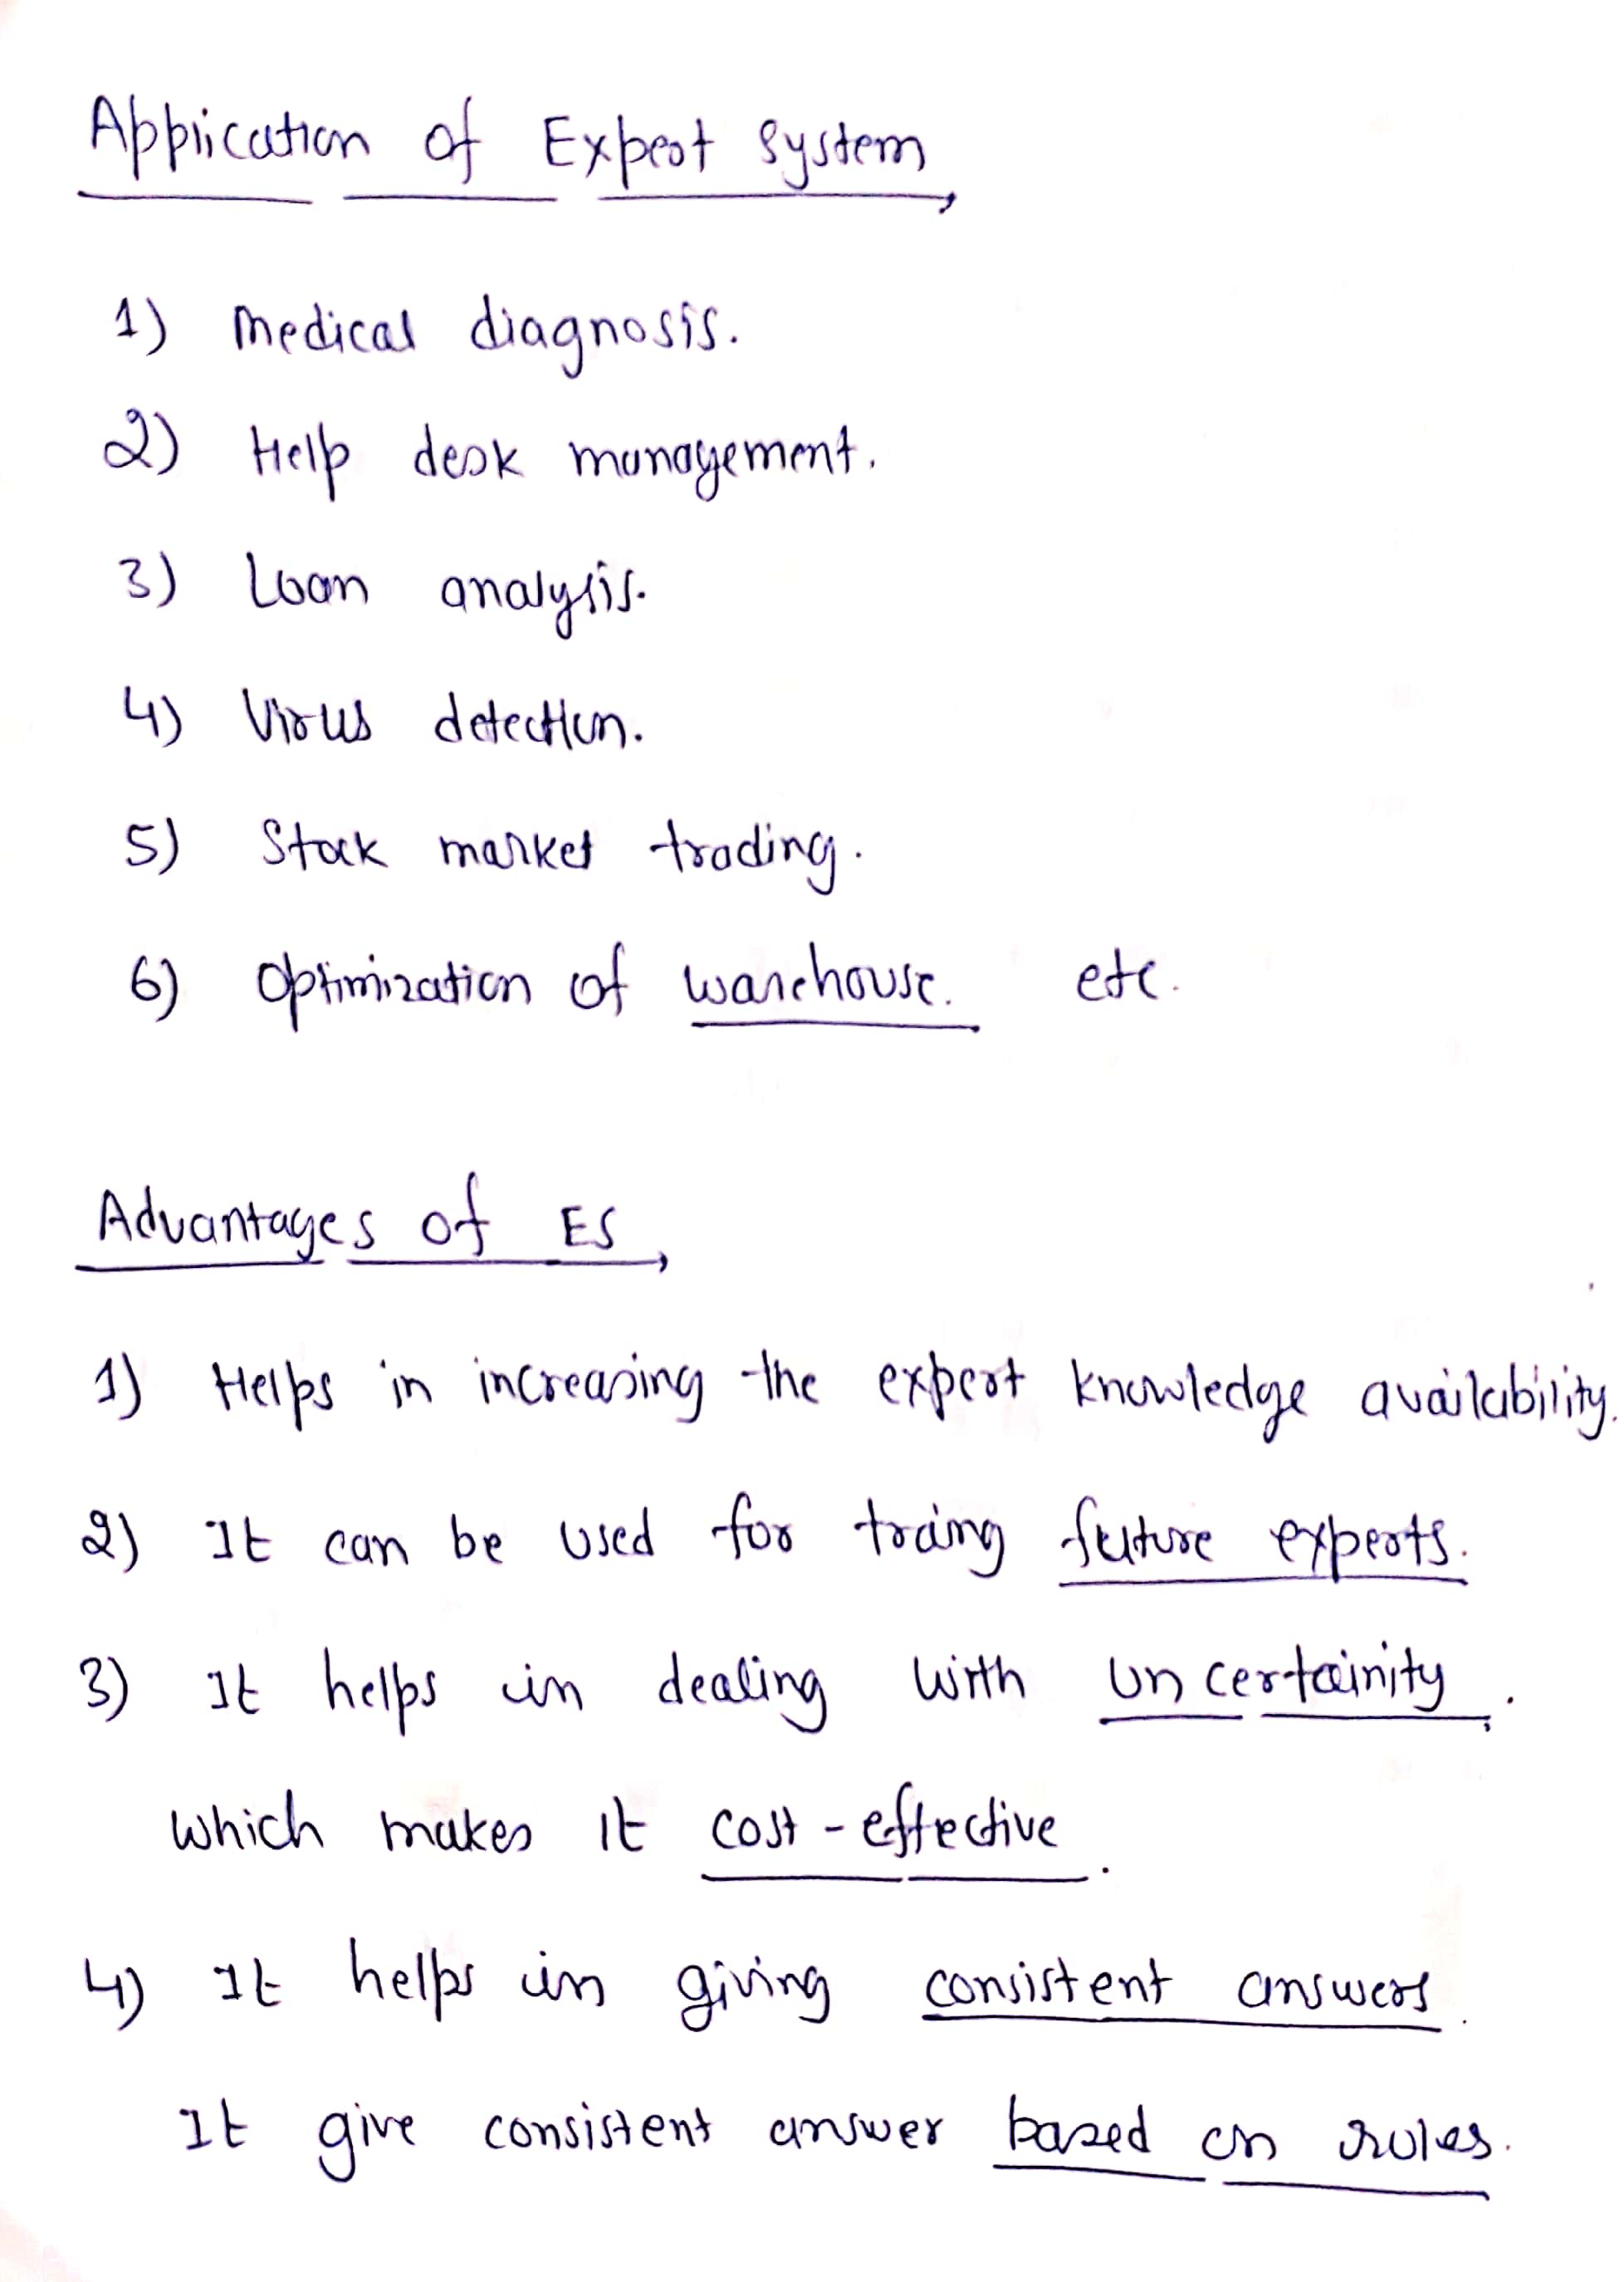 Application of Expert System
1) Medical diagnosis.
2) Help desk management.
3) Loan analysis.
4) Virus detection.
5) Stock market trading.
6) Optimization of warehouse. etc.
Advantages of ES
1) Helps in increasing the expert knowledge availability.
2) It can be used for traing future experts.
3) It helps in dealing with uncertainity.
which makes it cost-effective.
4) It helps in giving consistent answers.
It give consistent answer based on rules.